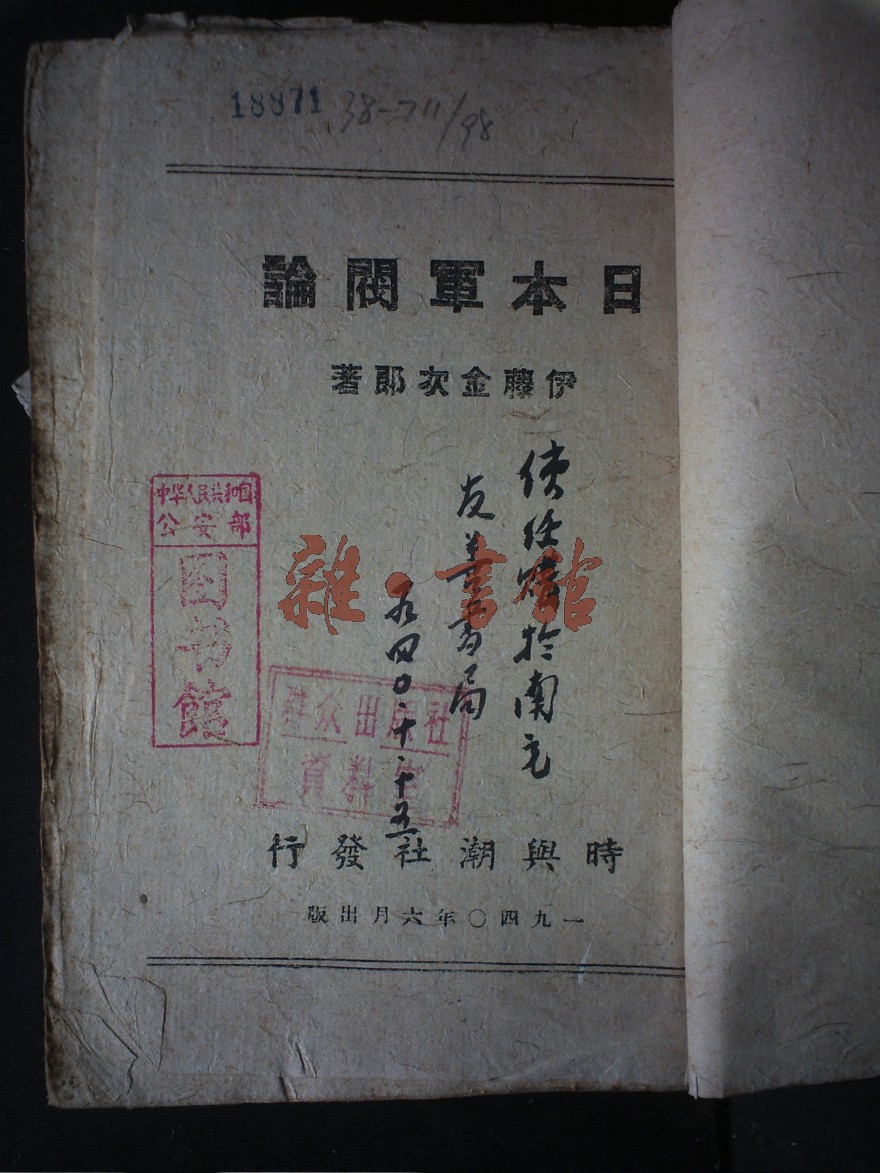 18871 38-711/98
日本軍閥論
伊藤金次郎著
於南充
友善書局
一九四〇·十·十五
中华人民共和国
公安部
图书馆
雜·書館
群众出版社
資料室
時與潮社發行
一九四〇年六月出版